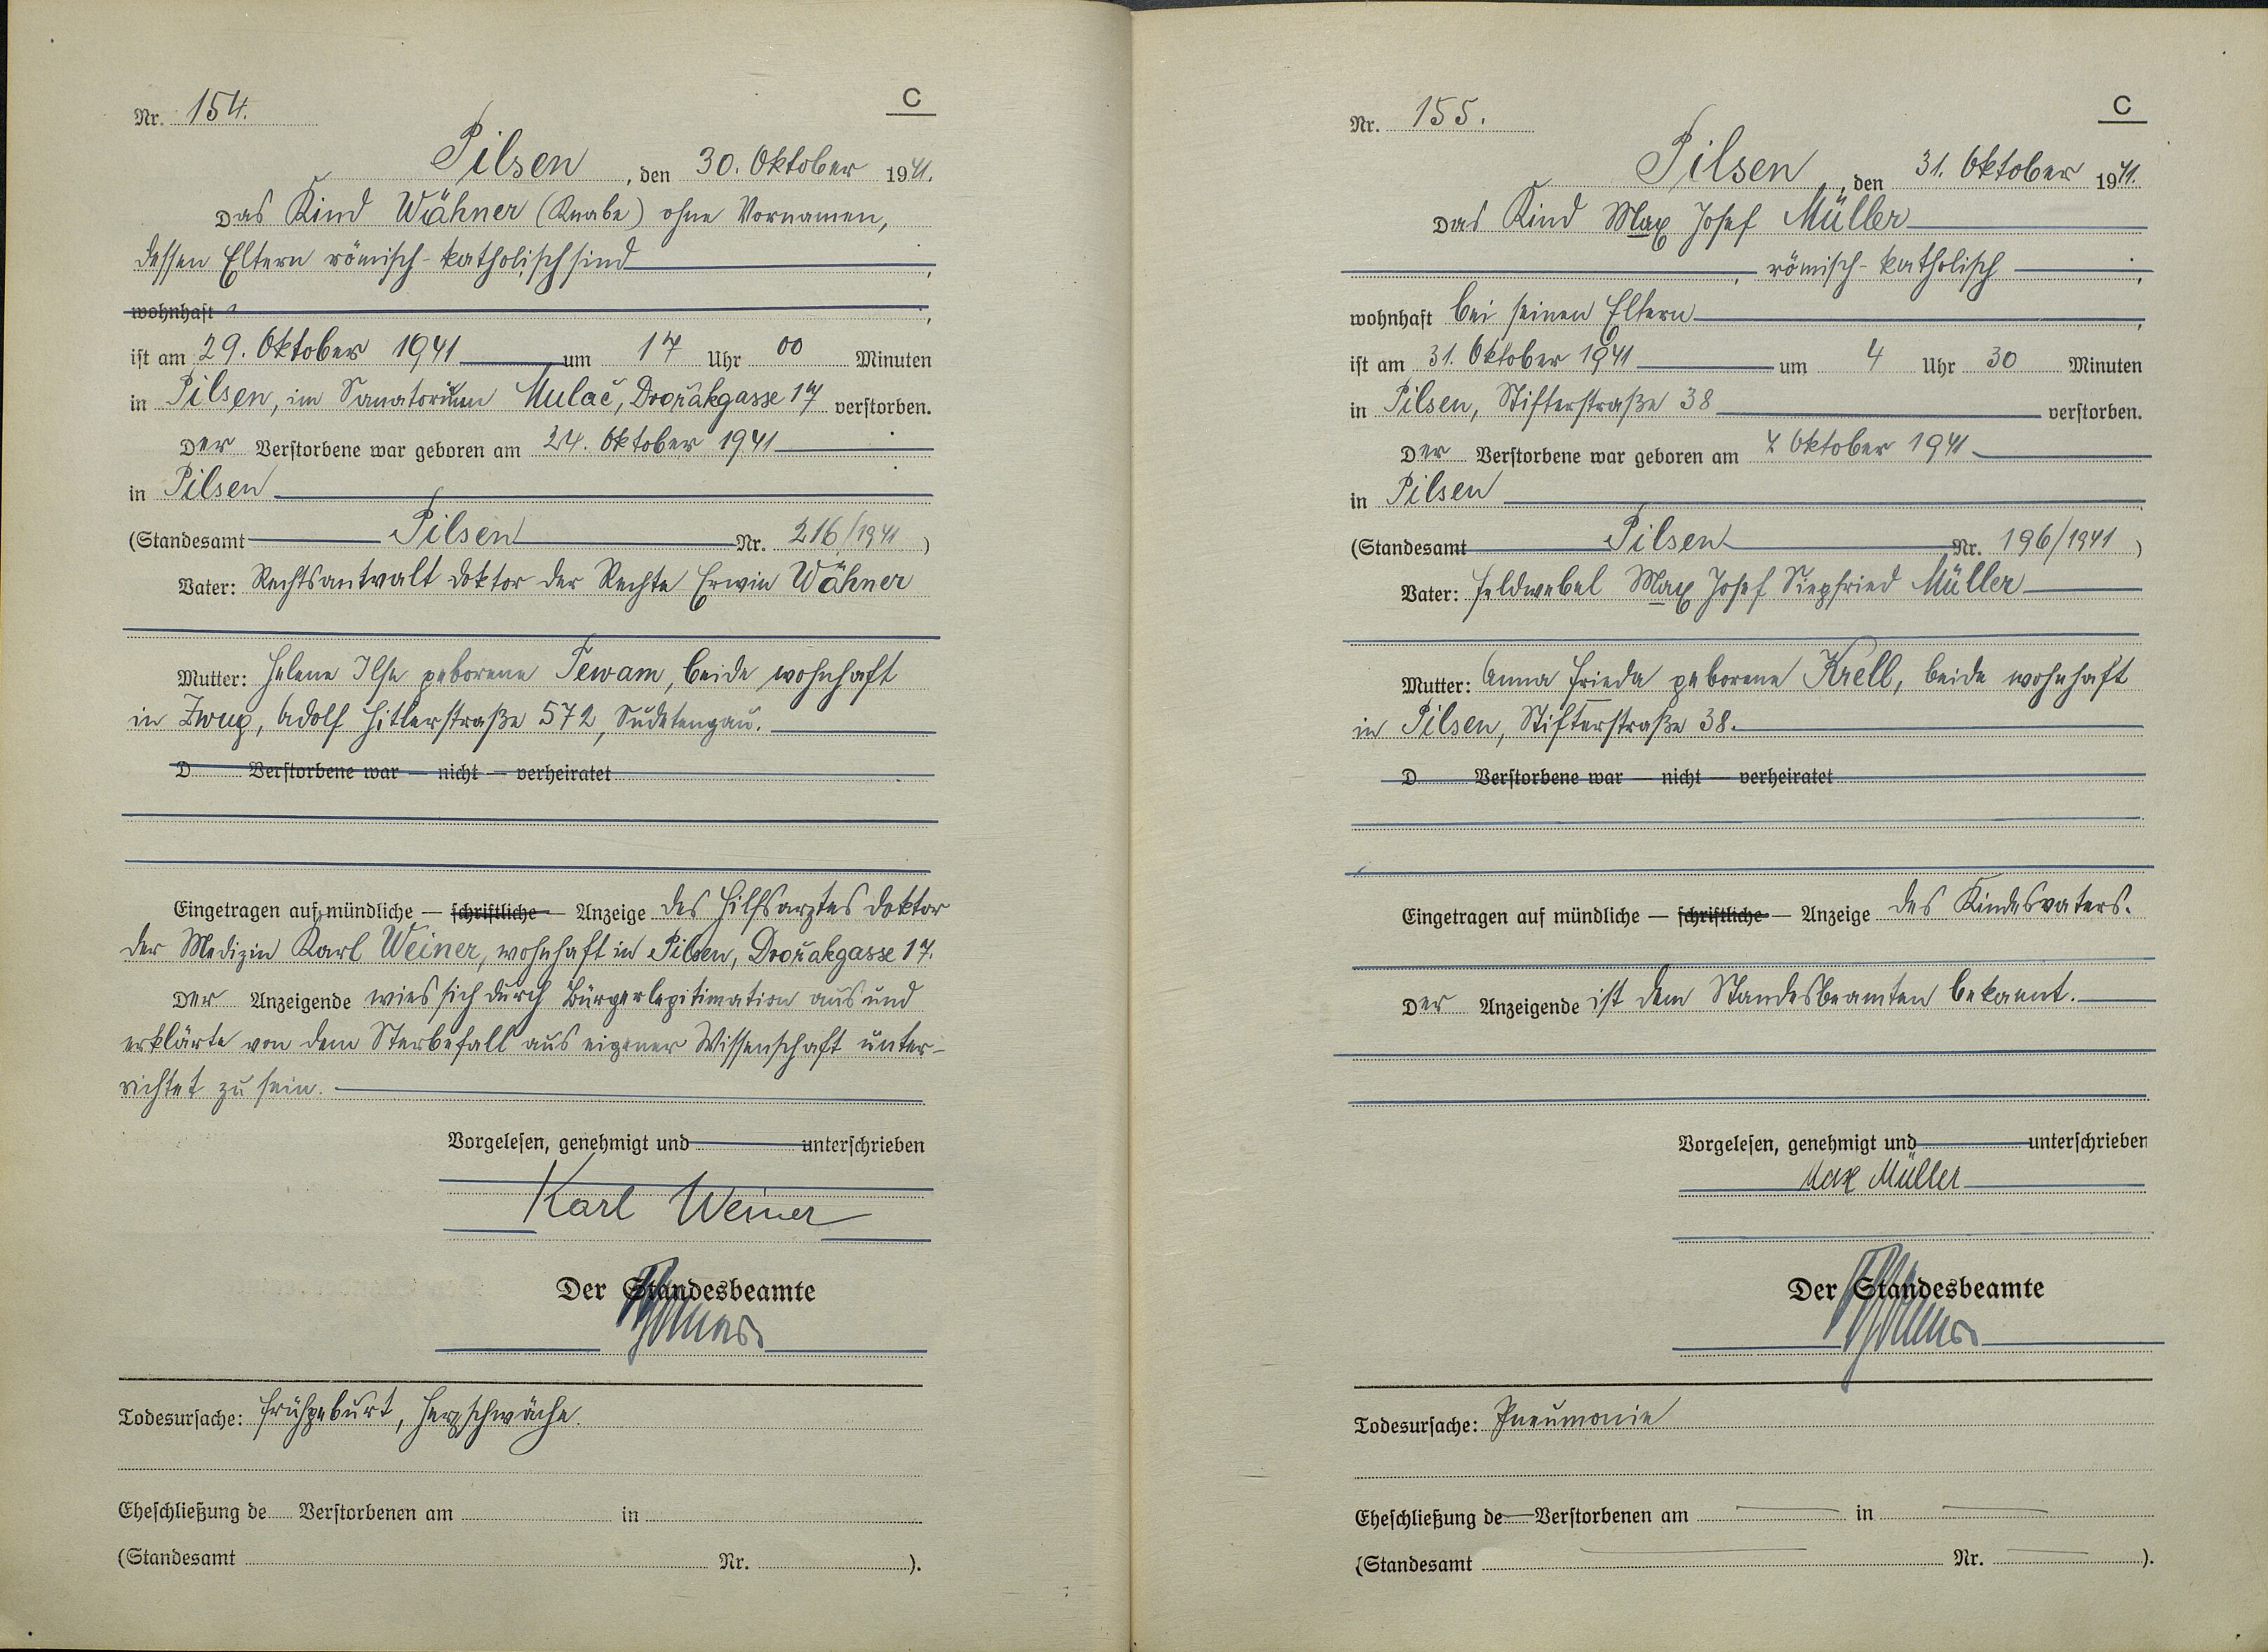 C
Nr. 154.
Pilsen, den 30. Oktober 1941.
Das Kind Wähner (Knabe) ohne Vornamen,
dessen Eltern römisch-katholisch sind,
wohnhaft,
ist am 29. Oktober 1941 um 17 Uhr 00 Minuten
in Pilsen, im Sanatorium Mulač, Dvořákgasse 17 verstorben.
Der Verstorbene war geboren am 24. Oktober 1941
in Pilsen
(Standesamt Pilsen Nr. 216/1941)
Vater: Rechtsantvalt doktor der Rechte Erwin Wähner
Mutter: Helene Ilse geborene Tewam, beide wohnhaft
in Zwug, Adolf Hitlerstraße 572, Sudetengau.
D Verstorbene war — nicht — verheiratet
Eingetragen auf mündliche — schriftliche — Anzeige des Hilfsarztes doktor
der Medizin Karl Weiner, wohnhaft in Pilsen, Dvořakgasse 17.
Der Anzeigende wies sich durch Bürgerlegitimation aus und
erklärte von dem Sterbefall aus eigener Wissenschaft unter-
richtet zu sein.
Vorgelesen, genehmigt und unterschrieben
Karl Weiner
Der Standesbeamte
Todesursache: Frühgeburt, Herzschwäche.
Eheschließung de Verstorbenen am in
(Standesamt Nr. ).
C
Nr. 155.
Pilsen, den 31. Oktober 1941.
Das Kind Max Josef Müller
, römisch-katholisch,
wohnhaft bei seinen Eltern,
ist am 31. Oktober 1941 um 4 Uhr 30 Minuten
in Pilsen, Stifterstraße 38 verstorben.
Der Verstorbene war geboren am 7 Oktober 1941
in Pilsen
(Standesamt Pilsen Nr. 196/1941)
Vater: Feldwebel Max Josef Siegfried Müller
Mutter: Anna Frieda geborene Krell, beide wohnhaft
in Pilsen, Stifterstraße 38.
D Verstorbene war — nicht — verheiratet
Eingetragen auf mündliche — schriftliche — Anzeige des Kindesvaters.
Der Anzeigende ist dem Standesbeamten bekannt.
Vorgelesen, genehmigt und unterschrieben
Max Müller
Der Standesbeamte
Todesursache: Pneumonie
Eheschließung de Verstorbenen am in
(Standesamt Nr. ).